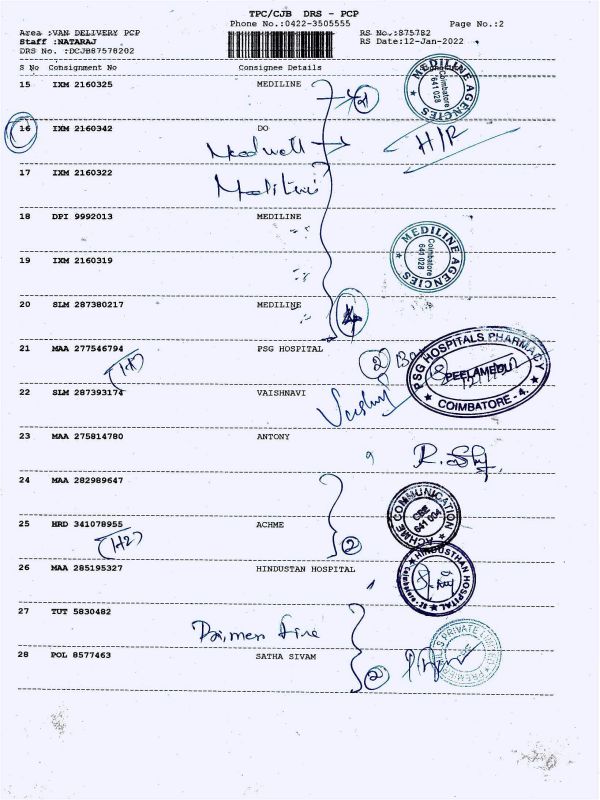 TPC/CJB DRS - PCP
Phone No.:0422-3505555 Page No.:2
Area :VAN DELIVERY PCP RS No.:875782
Staff :NATARAJ RS Date:12-Jan-2022
DRS No. :DCJB87578202
S No Consignment No Consignee Details
15 IXM 2160325 MEDILINE 2
MEDILINE AGENCIES Coimbatore 641 028
16 IXM 2160342 DO H/R
Medwell
17 IXM 2160322
18 DPI 9992013 MEDILINE
19 IXM 2160319
MEDILINE AGENCIES Coimbatore 641 028
20 SLM 287380217 MEDILINE 4
21 MAA 277546794 PSG HOSPITAL 2
(1+1)
PSG HOSPITALS PHARMACY PEELAMEDU COIMBATORE - 4.
22 SLM 287393174 VAISHNAVI
23 MAA 275814780 ANTONY
24 MAA 282989647
ACHME COMMUNICATION CBE 641 004
25 HRD 341078955 ACHME 2
(1+2)
26 MAA 285195327 HINDUSTAN HOSPITAL
HINDUSTHAN HOSPITAL
27 TUT 5830482
28 POL 8577463 SATHA SIVAM 2
PRIVATE LIMITED